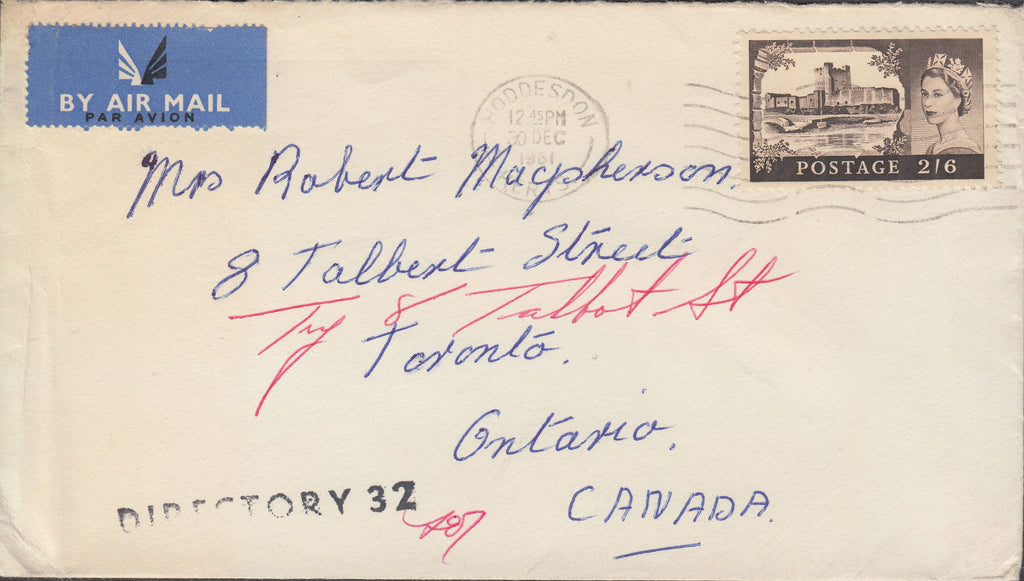 BY AIR MAIL
PAR AVION
HODDESDON
12 45 PM
30 DEC
1961
HERTS
POSTAGE 2/6
Mrs Robert Macpherson.
8 Talbert Street
Try 8 Talbot St
Toronto.
Ontario.
CANADA.
DIRECTORY 32